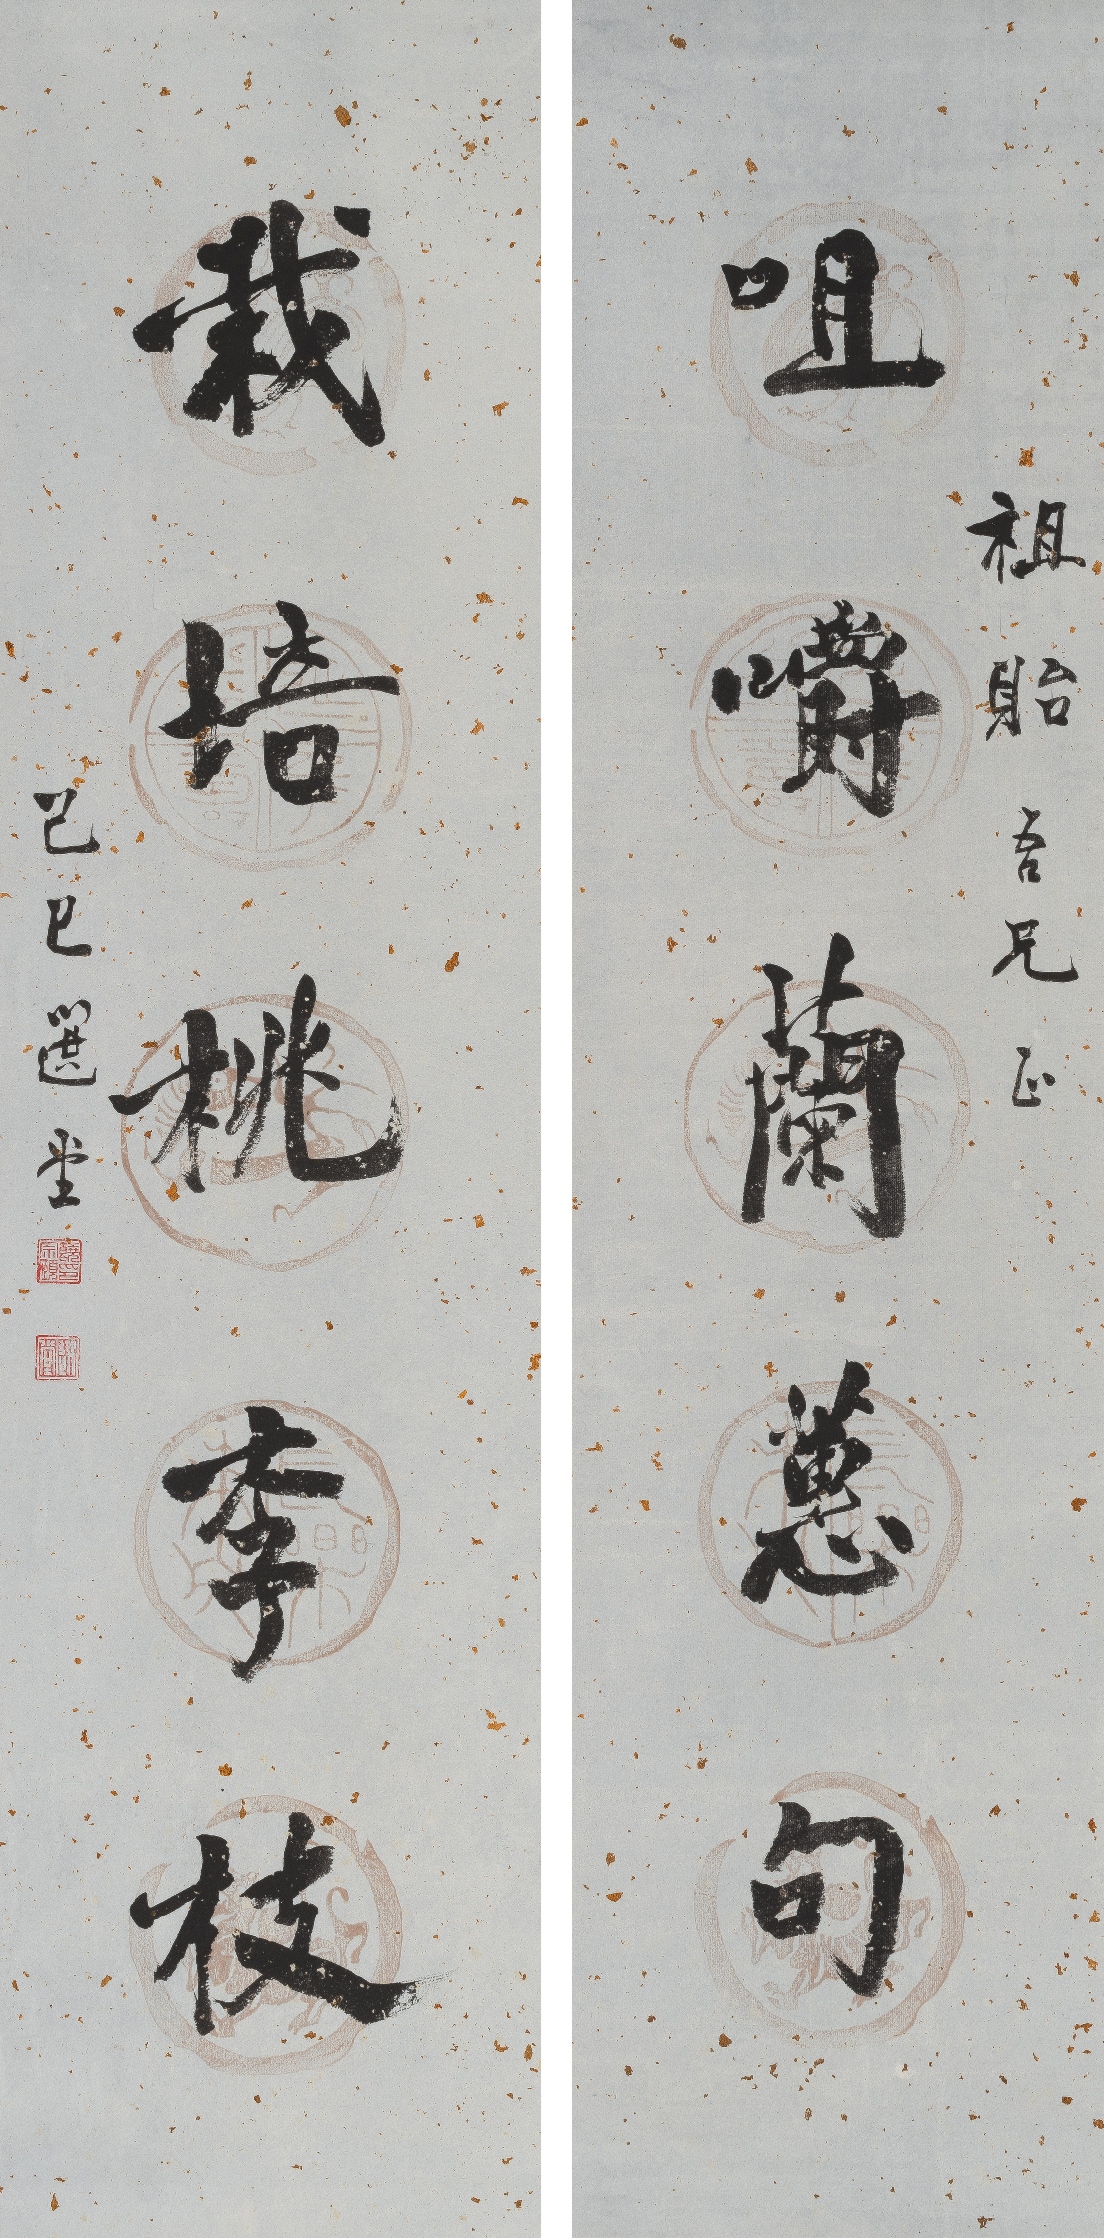 祖貽吾兄正
咀嚼蘭蕙句
栽培桃李枝
己巳選堂